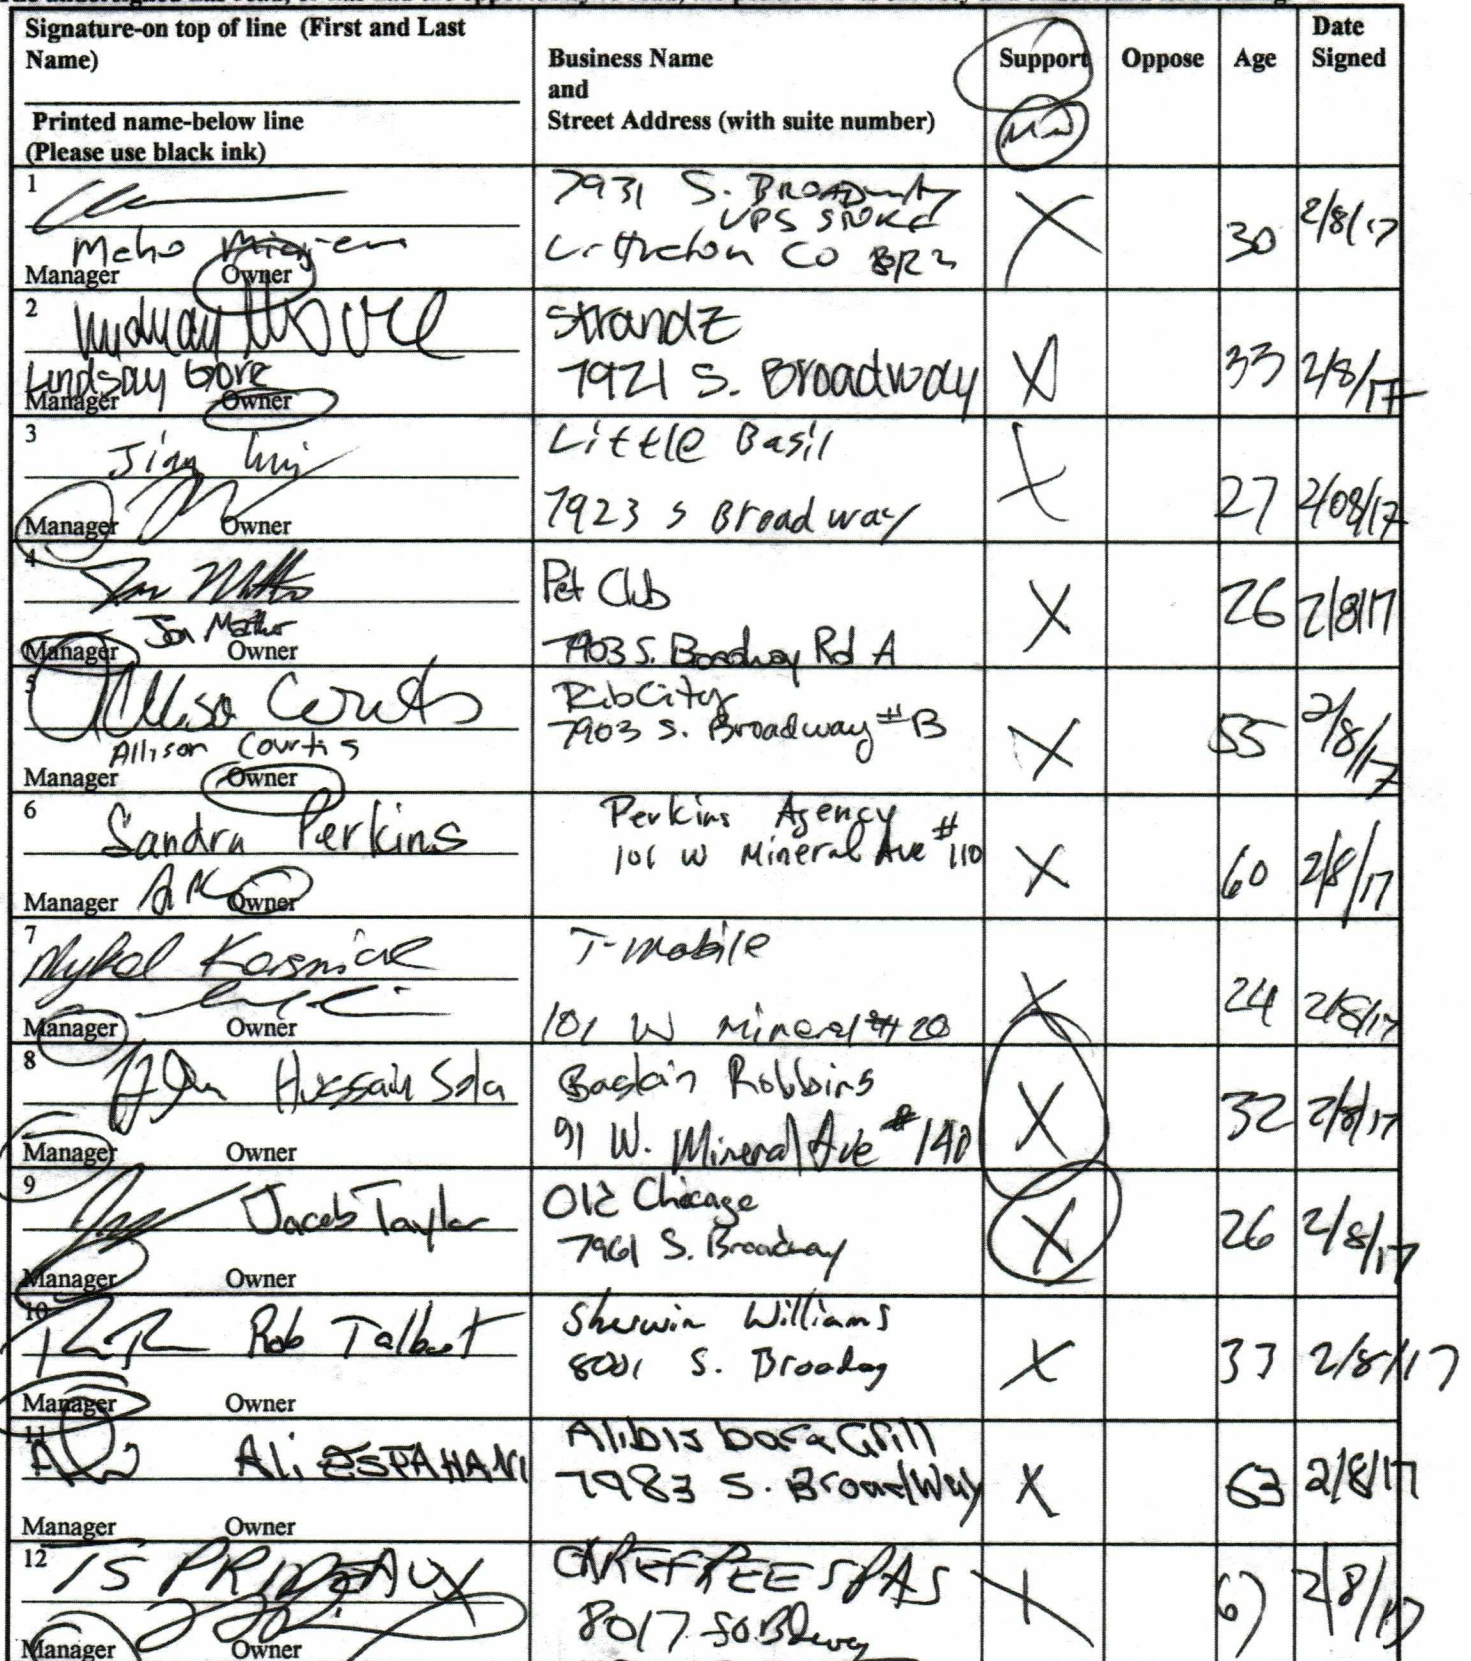 Signature-on top of line (First and Last
Name)
Printed name-below line
(Please use black ink)
Business Name
and
Street Address (with suite number)
Support
Oppose
Age
Date
Signed
1
Meho
Manager Owner
7931 S. Broadway
UPS STORE
Littleton CO
30
2/8/17
2
Lindsay Gore
Manager Owner
Strandz
7921 S. Broadway
X
33
2/8/17
3
Manager Owner
Little Basil
7923 S Broadway
X
27
2/08/17
4
Jon
Manager Owner
Pet Club
7903 S. Boadway Rd A
X
26
2/8/17
5
Allison Courtis
Manager Owner
RibCity
7903 S. Broadway #B
X
55
2/8/17
6
Sandra Perkins
Manager Owner
Perkins Agency
101 W Mineral Ave #110
X
60
2/8/17
7
Manager Owner
T-mobile
101 W Mineral
X
24
2/8/17
8
Hussain
Manager Owner
Baskin Robbins
91 W. Mineral Ave #140
X
32
2/8/17
9
Jacob Taylor
Manager Owner
Old Chicago
7961 S. Broadway
X
26
2/8/17
10
Rob Talbot
Manager Owner
Sherwin Williams
8001 S. Broadway
X
33
2/8/17
11
Ali ESFAHANI
Manager Owner
Alibis bar & Grill
7983 S. BroadWay
X
63
2/8/17
12
TS PRIDEAUX
Manager Owner
CAREFREE SPAS
8017 So. Bdwy
X
67
2/8/17